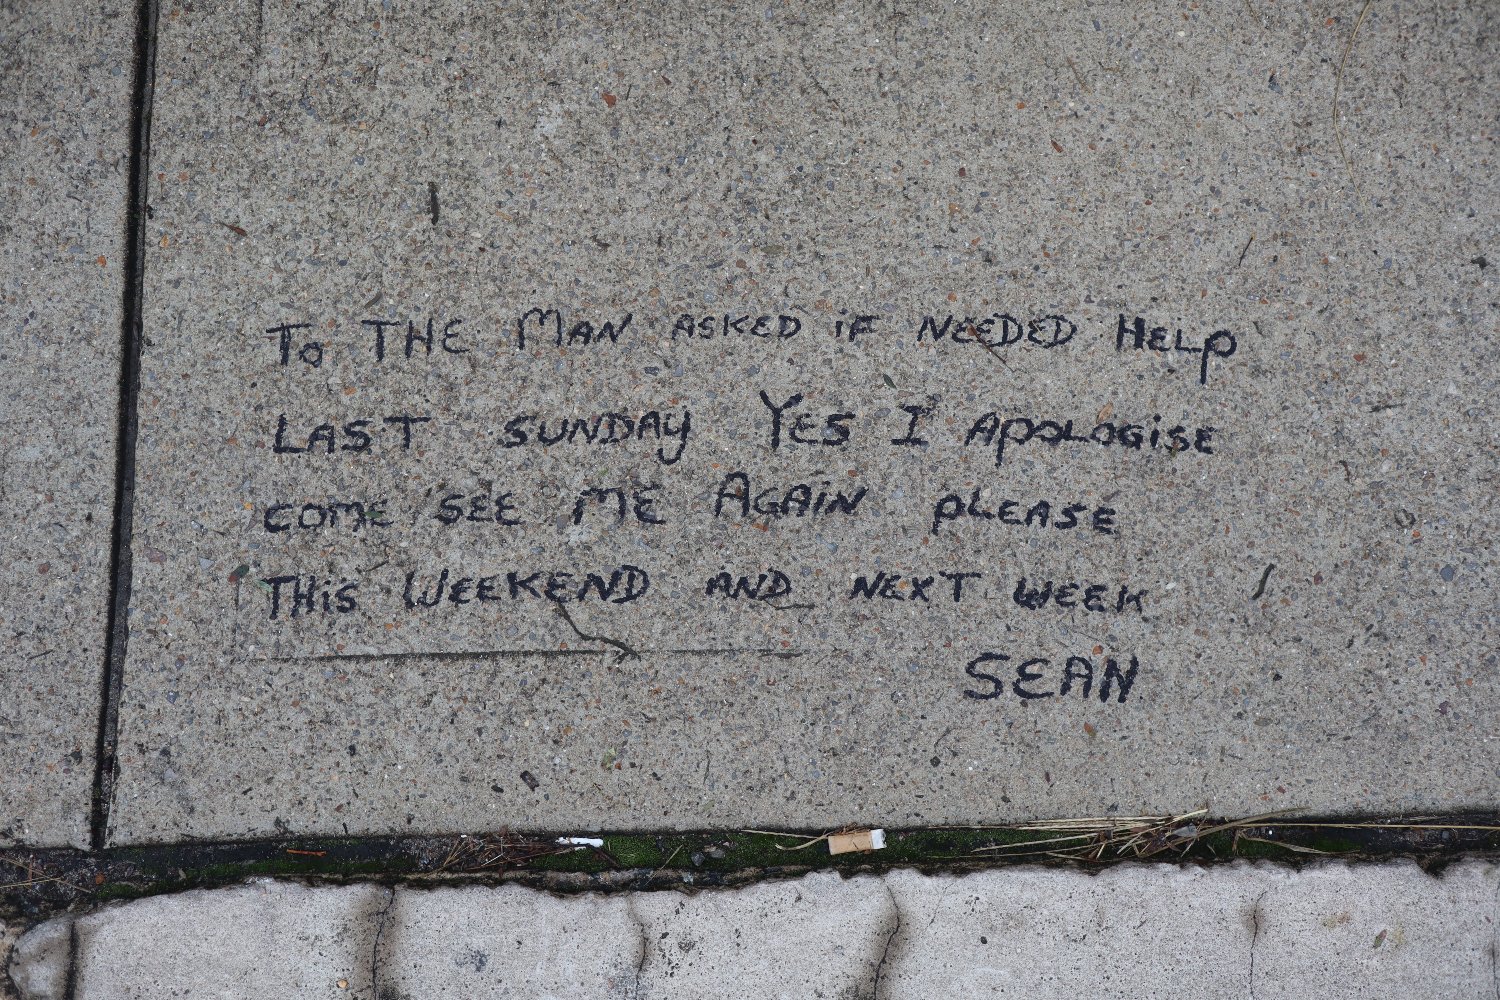 To THE MAN ASKED iF NEEDED HELP
LAST SUNDAY YES I APOLOGiSE
COME SEE ME AGAiN PLEASE
THiS WEEKEND AND NEXT WEEK
SEAN